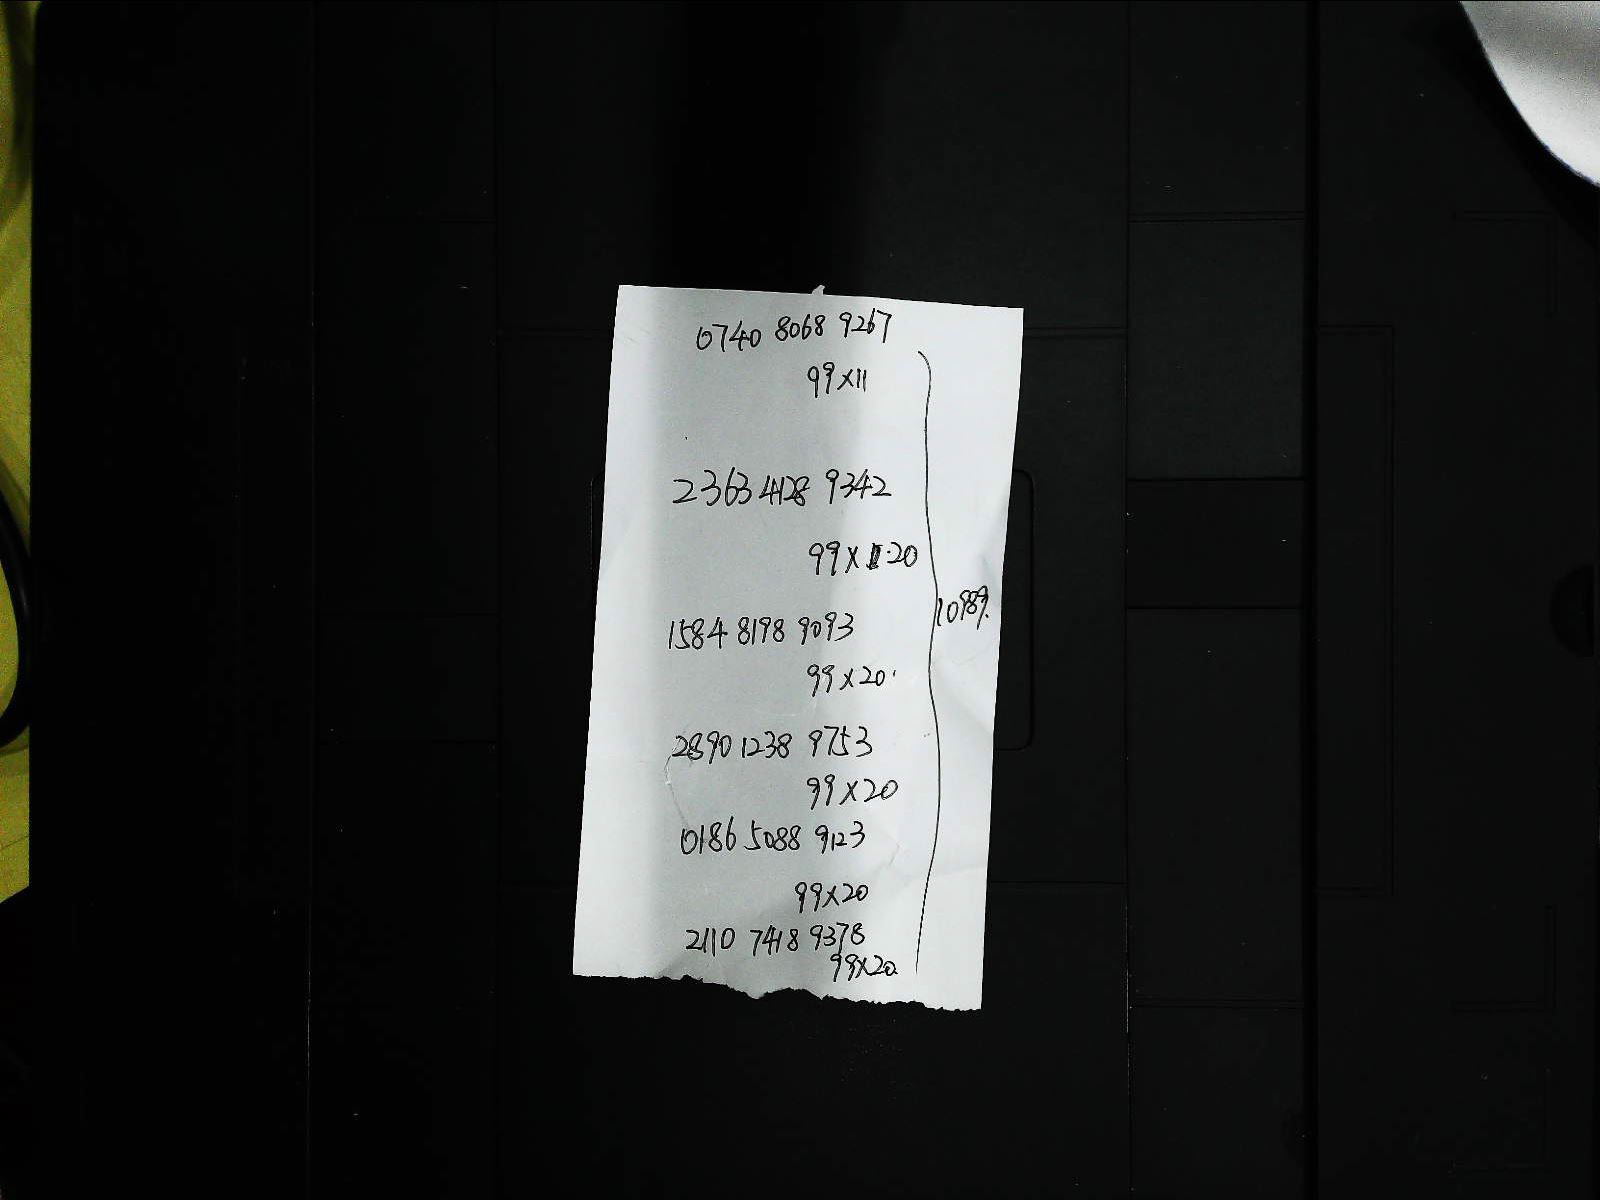 0740 8068 9267
99×11
2363 4128 9342
99×20
1584 8198 9093
99×20.
10989.
2890 1238 9753
99×20
0186 5088 9123
99×20
2110 7418 9378
99×20.